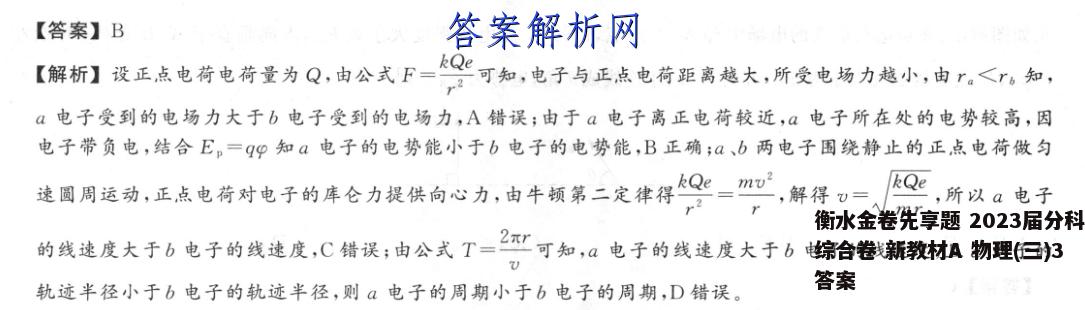 答案解析网
【答案】B
【解析】设正点电荷电荷量为 Q,由公式 F=kQe/r²可知,电子与正点电荷距离越大,所受电场力越小,由 rₐ<r_b 知,
a 电子受到的电场力大于 b 电子受到的电场力,A 错误;由于 a 电子离正电荷较近,a 电子所在处的电势较高,因
电子带负电,结合 Eₚ=qφ 知 a 电子的电势能小于 b 电子的电势能,B 正确;a、b 两电子围绕静止的正点电荷做匀
速圆周运动,正点电荷对电子的库仑力提供向心力,由牛顿第二定律得 kQe/r²=mv²/r,解得 v=√(kQe/mr),所以 a 电子
的线速度大于 b 电子的线速度,C 错误;由公式 T=2πr/v 可知,a 电子的线速度大于 b 电
轨迹半径小于 b 电子的轨迹半径,则 a 电子的周期小于 b 电子的周期,D 错误。
衡水金卷先享题 2023届分科
综合卷 新教材A 物理(三)3
答案